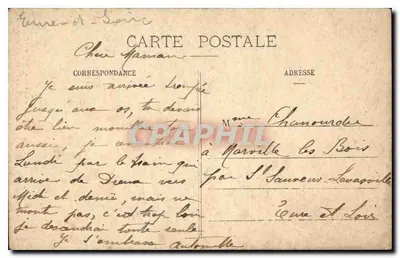 Eure-et-Loir
CARTE POSTALE
Chère Maman
CORRESPONDANCE
ADRESSE
Je suis arrivée trempée
jusqu'aux os, tu devais
être bien mouillée toi
aussi, je
Lundi par le train qui
arrive de Dreux vers
Midi et demie, mais ne
monte pas, c'est trop loin
je descendrai toute seule
Je t'embrasse Antoinette
CPAPHIL
Mme Chanourdie
à Marville les Bois
par St Sauveur Levasville
Eure et Loir